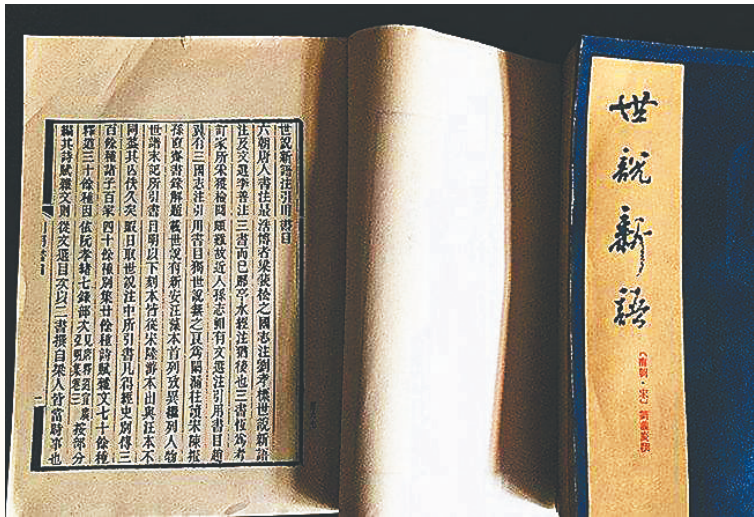 世說新語注引用書目
六朝唐人書注最浩博者梁裴松之國志注劉孝標世說新語
注及文選李善注三書而已酈亭水經注猶後也三書恆為考
訂家所采獲檢閱頗難故近人孫志師有文選注引用書目趙
翼有三國志注引用書目獨世說無之良為闕漏往讀宋陳振
孫直齋書錄解題載世說有新安汪藻本首列攷異繼列人物
世譜末記所引書目明以下刻本皆從宋陸游本出與汪本不
同蓋其亾佚久矣暇日取世說注中所引書凡得經史別傳三
百餘種諸子百家四十餘種別集廿餘種詩賦雜文七十餘種
釋道三十餘種因依阮孝緒七錄部次見唐釋道宣廣弘明集卷三按部分
編其詩賦雜文則從文選目次以二書撰自梁人皆當時事也
世說新語
〔南朝·宋〕劉義慶撰